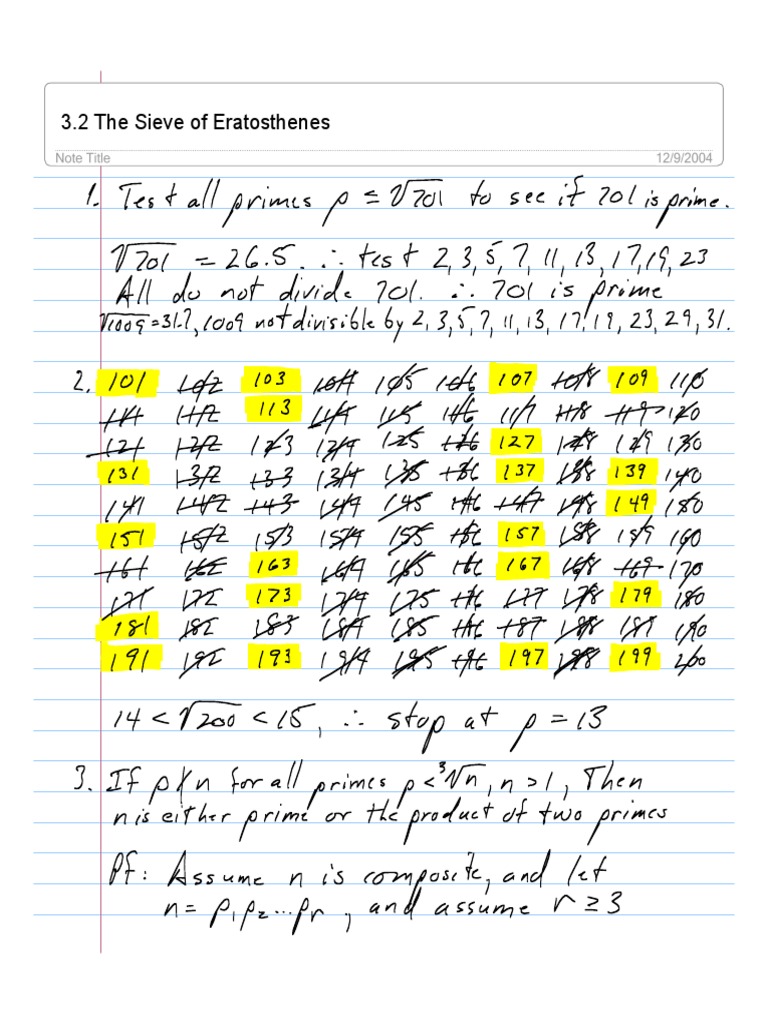 3.2 The Sieve of Eratosthenes
Note Title 12/9/2004
1. Test all primes p ≤ √701 to see if 701 is prime.
√701 = 26.5. ∴ test 2, 3, 5, 7, 11, 13, 17, 19, 23
All do not divide 701. ∴ 701 is prime
√1009 = 31.7, 1009 not divisible by 2, 3, 5, 7, 11, 13, 17, 19, 23, 29, 31.
2. 101 102 103 104 105 106 107 108 109 110
111 112 113 114 115 116 117 118 119 120
121 122 123 124 125 126 127 128 129 130
131 132 133 134 135 136 137 138 139 140
141 142 143 144 145 146 147 148 149 150
151 152 153 154 155 156 157 158 159 160
161 162 163 164 165 166 167 168 169 170
171 172 173 174 175 176 177 178 179 180
181 182 183 184 185 186 187 188 189 190
191 192 193 194 195 196 197 198 199 200
14 < √200 < 15, ∴ stop at p = 13
3. If p ∤ n for all primes p < ³√n, n > 1, Then
n is either prime or the product of two primes
Pf: Assume n is composite, and let
n = p₁p₂...pr, and assume r ≥ 3